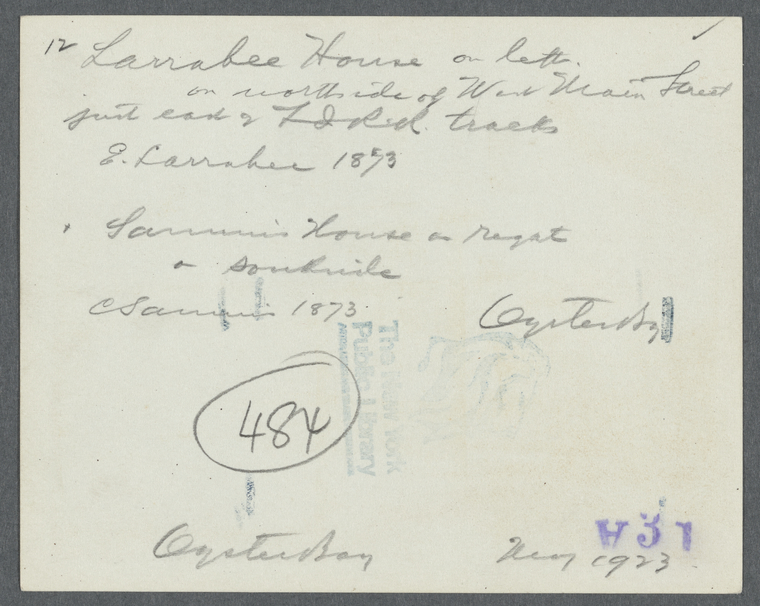 12 Larrabee House on left.
on north side of West Main Street
just east of L I R.R. tracks
E. Larrabee 1873
Sammis House on right
on southside
C Sammis 1873
Oyster Bay
The New York
Public Library
484
Oyster Bay
May 1923